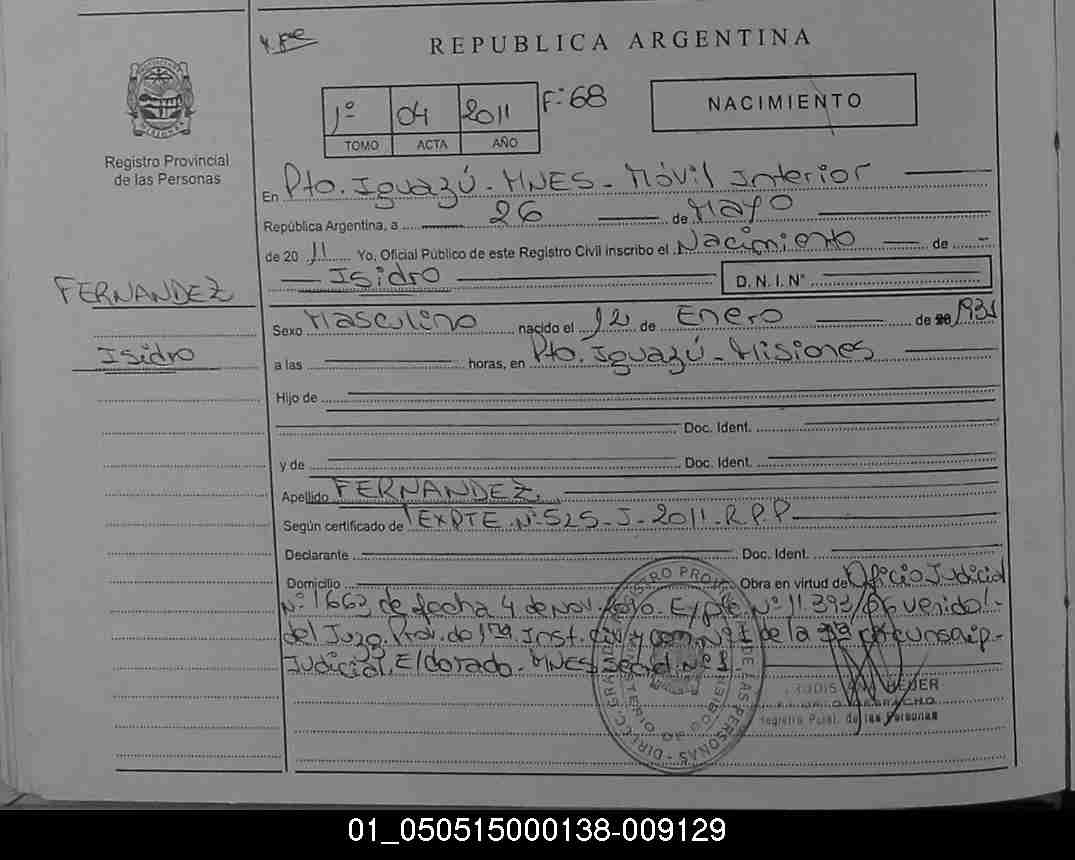 REPUBLICA ARGENTINA
1º 04 2011 Fº 68
TOMO ACTA AÑO
NACIMIENTO
Registro Provincial
de las Personas
En Pto. Iguazú - MNES - Móvil Interior
República Argentina, a 26 de Mayo
de 20 11 Yo, Oficial Público de este Registro Civil inscribo el Nacimiento de
Isidro D.N.I. Nº
FERNANDEZ
Isidro
Sexo Masculino nacido el 12 de Enero de 20 1931
a las horas, en Pto. Iguazú - Misiones
Hijo de
Doc. Ident.
y de Doc. Ident.
Apellido FERNANDEZ
Según certificado de EXPTE Nº 525-J-2011-R.P.P
Declarante Doc. Ident.
Domicilio Obra en virtud de Oficio Judicial
Nº 1663 de fecha 4 de Nov. 2010. Expte Nº 11.393/06 venido
del Juzg. Prov. de 1ra Inst. Civ y Com. Nº 1 de la 3ra circunscrip.
Judicial. Eldorado - MNES Secret. Nº 1
REGISTRO PROVINCIAL DE LAS PERSONAS - DIRECC. GRAL.
Registro Pcial. de las Personas
01_050515000138-009129